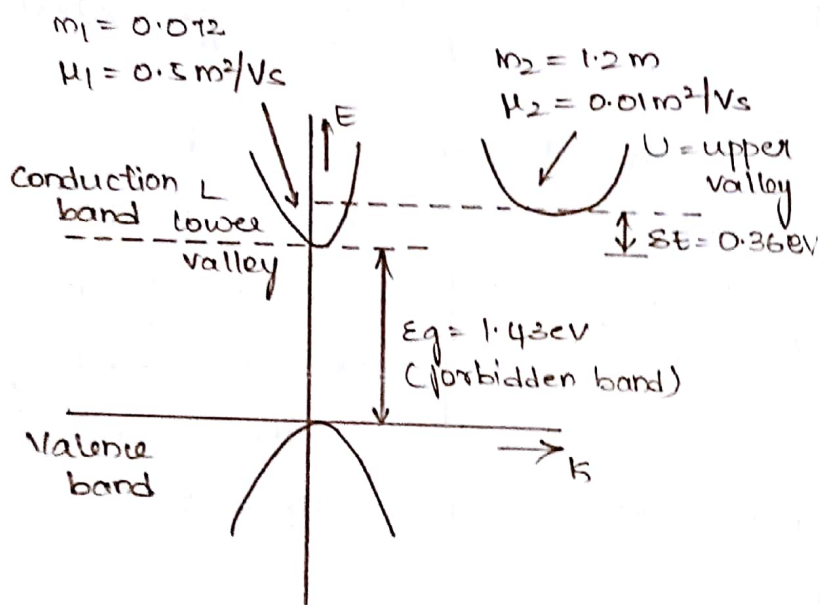 m1 = 0.072
μ1 = 0.5 m²/Vs
m2 = 1.2 m
μ2 = 0.01m²/Vs
E
U = upper
valley
Conduction L
band lower
valley
δE = 0.36eV
Eg = 1.43eV
(forbidden band)
Valence
band
K